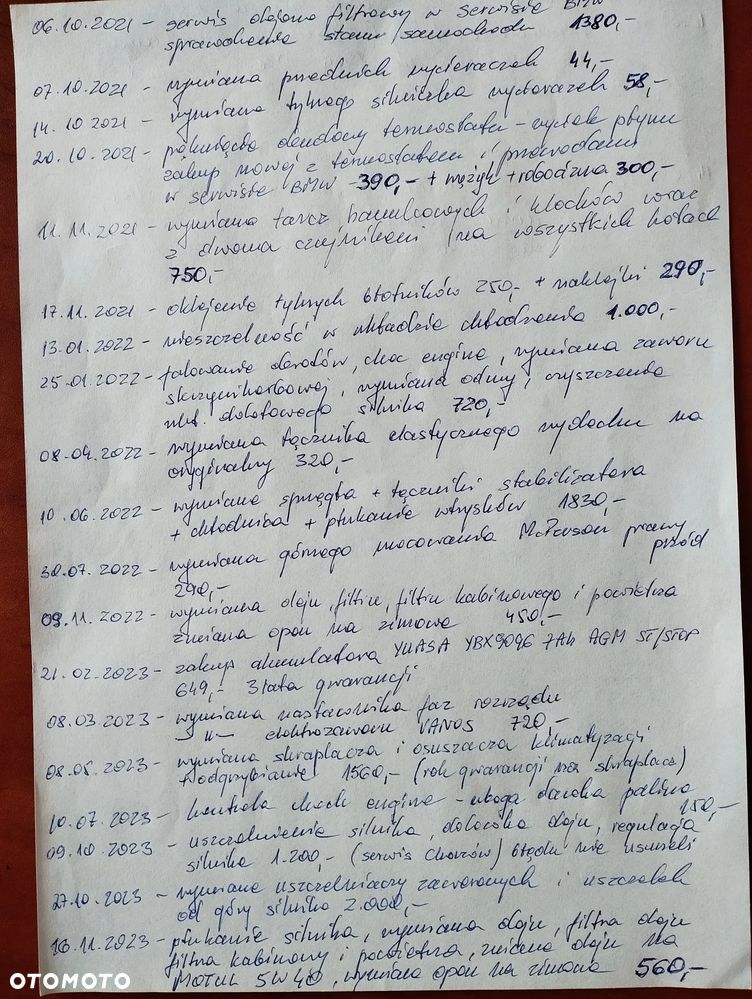 06.10.2021 - serwis olejowo filtrowy w serwisie BMW
sprawdzenie stanu samochodu 1380,-
07.10.2021 - wymiana przednich wycieraczek 44,-
14.10 2021 - wymiana tylnego silniczka wycieraczek 58,-
20.10.2021 - pęknięcie obudowy termostatu - wyciek płynu
zakup nowej z termostatem i przewodami
w serwisie BMW -390,- + + robocizna 300,-
11.11.2021 - wymiana tarcz hamulcowych i klocków wraz
z dwoma czujnikami (na wszystkich kołach
750,-
17.11.2021 - oklejenie tylnych błotników 250,- + naklejki 290,-
13.01.2022 - nieszczelność w układzie chłodzenia 1.000,-
25.01.2022 - falowanie obrotów, chec engine, wymiana zaworu
skrzyni korbowej, wymiana odmy, czyszczenie
ukł. dolotowego silnika 720,-
08.04.2022 - wymiana łącznika elastycznego wydechu na
oryginalny 320,-
10.06.2022 - wymiana sprzęgła + łączniki stabilizatora
+ chłodnica + płukanie wtrysków 1830,-
30.07.2022 - wymiana górnego mocowania McPerson prawy
przód
290,-
09.11.2022 - wymiana oleju, filtru, filtru kabinowego i powietrza
zmiana opon na zimowe 450,-
21.02.2023 - zakup akumulatora YUASA YBX9096 7Ah AGM ST/STOP
649,- 3 lata gwarancji
08.03.2023 - wymiana nastawnika faz rozrządu
- " - elektrozaworu VANOS 720,-
08.05.2023 - wymiana skraplacza i osuszacza klimatyzacji
+ odgrzybianie 1560,- (rok gwarancji na skraplacz)
10.07.2023 - kontrola check engine - uboga dawka paliwa
150,-
09.10.2023 - uszczelnienie silnika, dolewka oleju, regulacja
silnika 1.200,- (serwis Chorzów) błędu nie usunęli
27.10.2023 - wymiana uszczelniaczy zaworowych i uszczelek
od góry silnika 2.000,-
16.11.2023 - płukanie silnika, wymiana oleju, filtra oleju
filtra kabinowy i powietrza, zmiana oleju na
MOTUL 5W40, wymiana opon na zimowe 560,-
OTOMOTO